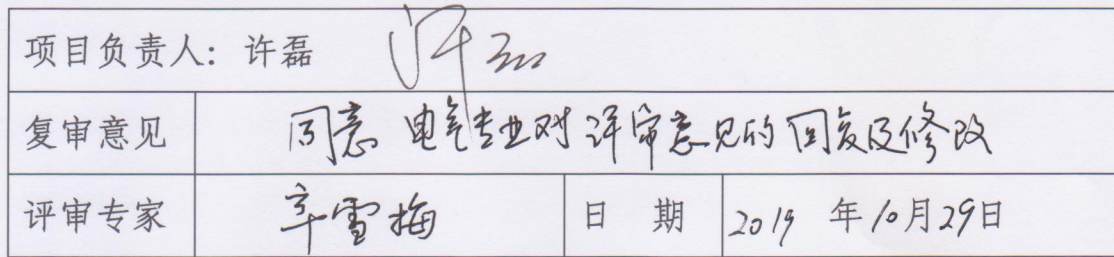 项目负责人: 许磊 许磊
复审意见 同意 电气专业对评审意见的回复及修改
评审专家 辛雪梅 日 期 2019 年10月29日